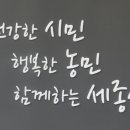 건강한 시민
행복한 농민
함께하는 세종